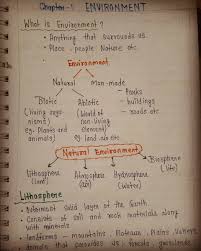 Chapter-1 ENVIRONMENT
What is Environment?
• Anything that surrounds us.
• Place, people Nature etc.
Environment
Natural Man-made
Biotic Abiotic
(living orga- (World of
nisms) non-living
eg. Plants and element)
animals) eg. land, air etc
- Parks
- buildings
- roads etc
Natural Environment
Lithosphere Atmosphere Hydrosphere Biosphere
(land) (Air) (Water) (life)
Lithosphere
• Outermost Solid layer of the Earth
• Consists of soil and rock materials along
with minerals
• landforms - mountains, Plateaus, Plains, Valleys
that provides us forests, grasslands